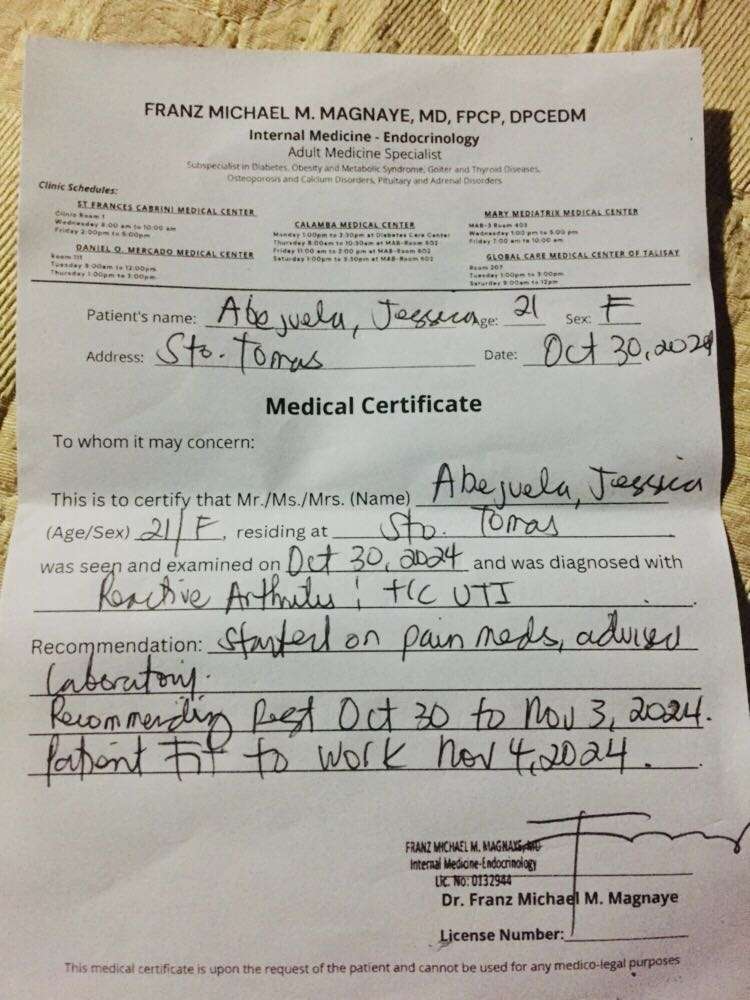 FRANZ MICHAEL M. MAGNAYE, MD, FPCP, DPCEDM
Internal Medicine - Endocrinology
Adult Medicine Specialist
Subspecialist in Diabetes, Obesity and Metabolic Syndrome, Goiter and Thyroid Diseases,
Osteoporosis and Calcium Disorders, Pituitary and Adrenal Disorders
Clinic Schedules:
ST FRANCES CABRINI MEDICAL CENTER
Clinic Room 1
Wednesday 8:00 am to 10:00 am
Friday 2:00pm to 5:00pm
DANIEL O. MERCADO MEDICAL CENTER
Room 111
Tuesday 9:00am to 12:00pm
Thursday 1:00pm to 3:00pm
CALAMBA MEDICAL CENTER
Monday 1:00pm to 3:30pm at Diabetes Care Center
Thursday 8:00am to 10:30am at MAB-Room 602
Friday 11:00 am to 2:00 pm at MAB-Room 602
Saturday 1:00pm to 3:30pm at MAB-Room 602
MARY MEDIATRIX MEDICAL CENTER
MAB-3 Room 403
Wednesday 1:00 pm to 5:00 pm
Friday 7:00 am to 10:00 am
GLOBAL CARE MEDICAL CENTER OF TALISAY
Room 207
Tuesday 1:00pm to 3:00pm
Saturday 9:00am to 12pm
Patient's name: Abejuela, Jessica Age: 21 Sex: F
Address: Sto. Tomas Date: Oct 30, 2024
Medical Certificate
To whom it may concern:
This is to certify that Mr./Ms./Mrs. (Name) Abejuela, Jessica
(Age/Sex) 21/F, residing at Sto. Tomas
was seen and examined on Oct 30, 2024 and was diagnosed with
Reactive Arthritis ; t/c UTI
Recommendation: started on pain meds, advised
laboratory.
Recommending Rest Oct 30 to Nov 3, 2024.
Patient Fit to work Nov 4, 2024.
FRANZ MICHAEL M. MAGNAYE, MD
Internal Medicine-Endocrinology
Lic. No: 0132944
Dr. Franz Michael M. Magnaye
License Number:
This medical certificate is upon the request of the patient and cannot be used for any medico-legal purposes